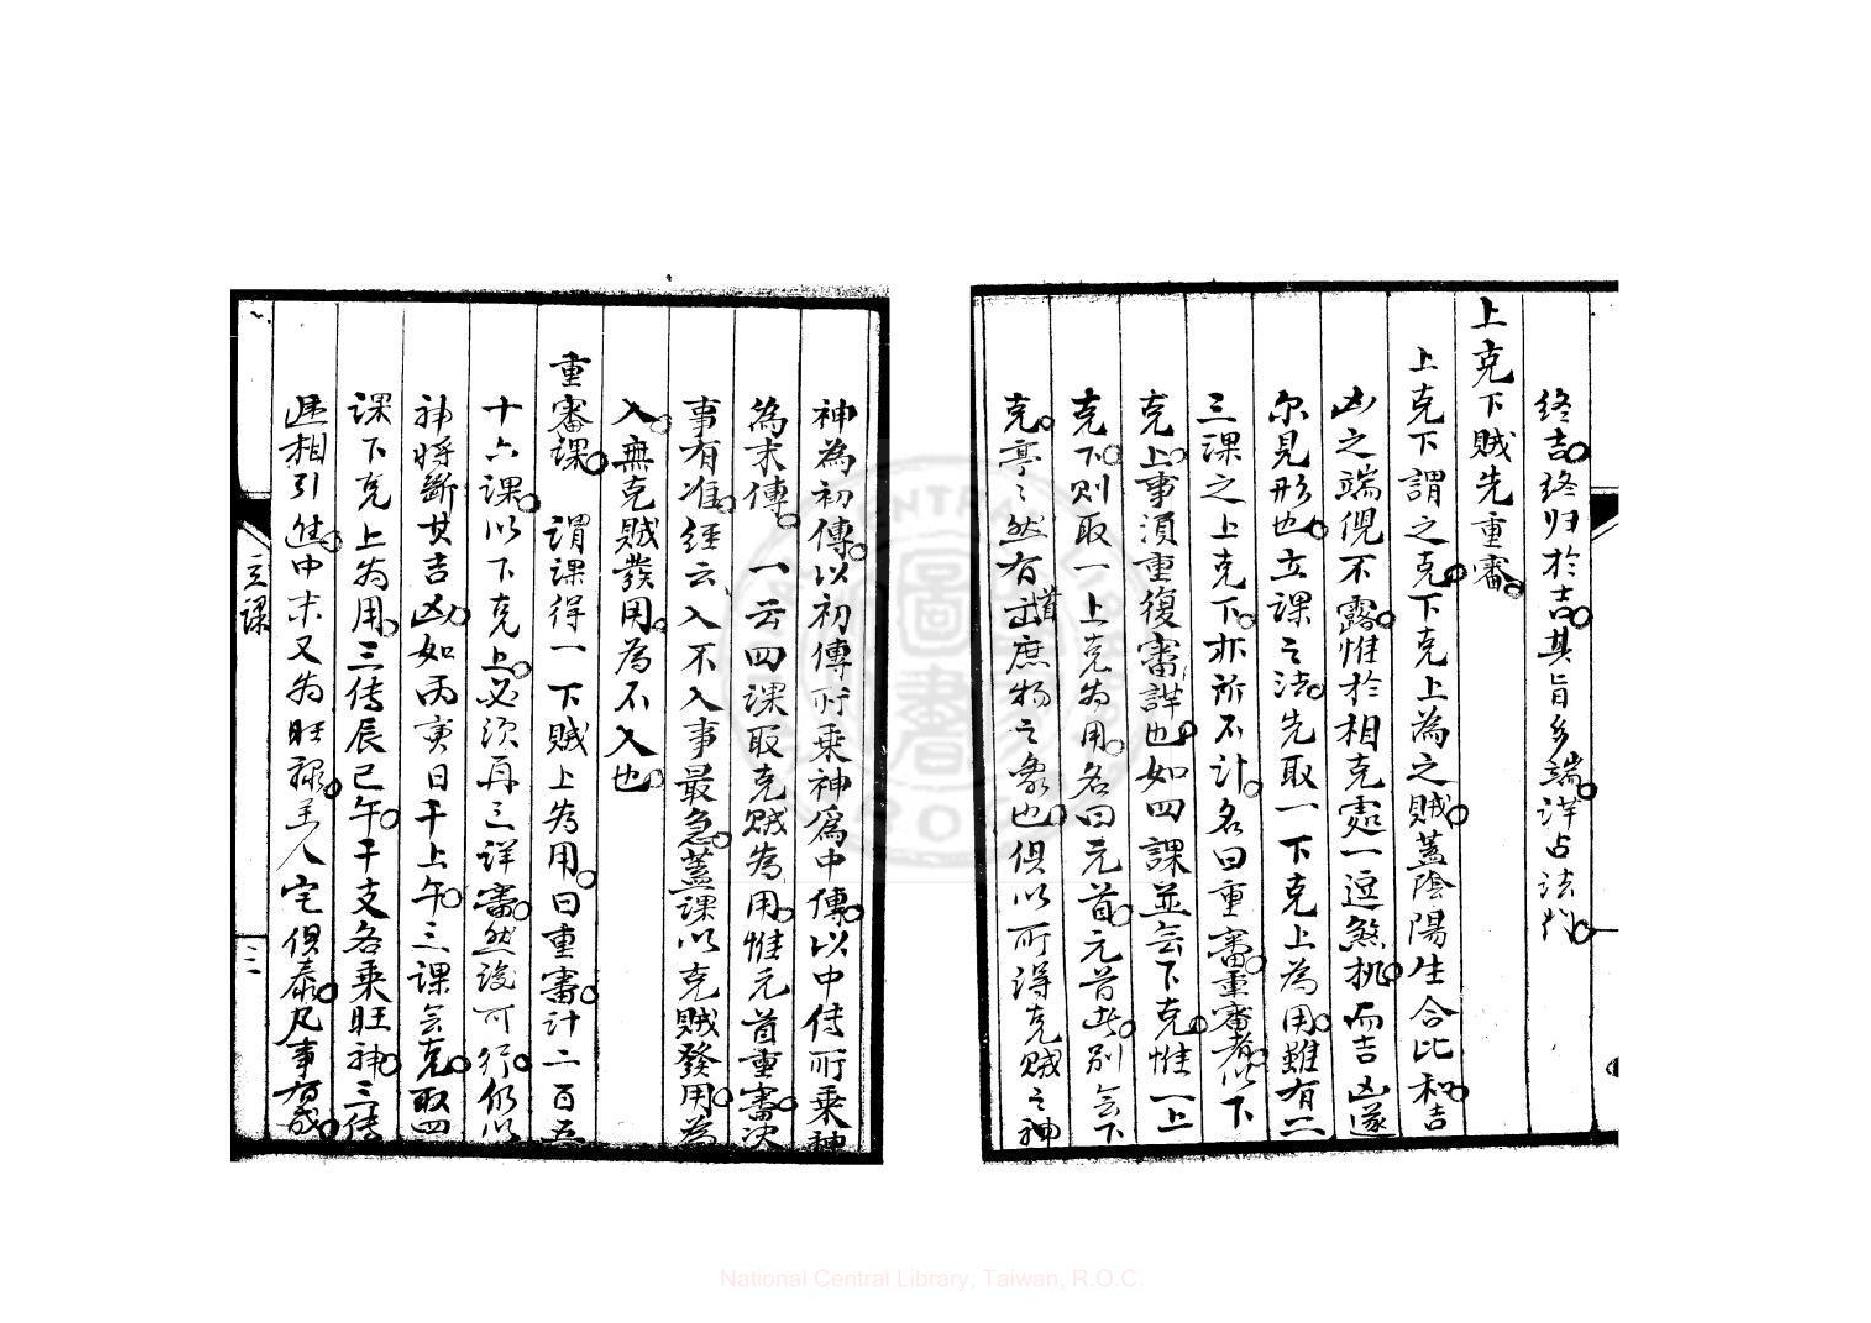 終吉。終归於吉。其旨多端。詳占法內。
上克下賊先重審。
上克下謂之克。下克上為之賊。蓋陰陽生合比和。吉
凶之端倪不露。惟於相克處一逗煞机。而吉凶遂
尔見形也。立課之法。先取一下克上為用。雖有二
三課之上克下。亦所不計。名曰重審。重審者。以下
克上。事須重復審詳也。如四課並無下克。惟一上
克下。則取一上克為用。名曰元首。元首此。別無下
克。亭亭然有首出庶物之象也。俱以所得克賊之神
神為初傳。以初傳所乘神為中傳。以中传所乘神
為末傳。一云四課取克賊為用。惟元首重審。決
事有准。經云入不入事最急。蓋課以克賊發用。為
入。無克賊發用。為不入也。
重審課。 謂課得一下賊上為用。曰重審。計二百五
十六課。以下克上。必須再三详審。然後可行。仍以
神將斷其吉凶。如丙寅日干上午。三課無克。取四
课下克上为用。三传辰巳午。干支各乘旺神。三传
逓相引進。中末又为旺祿。主人宅俱泰。凡事有成。
立課
三
National Central Library, Taiwan, R.O.C.